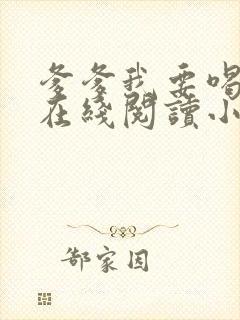 爹爹我要喝
在綫閱讀小
郜家因